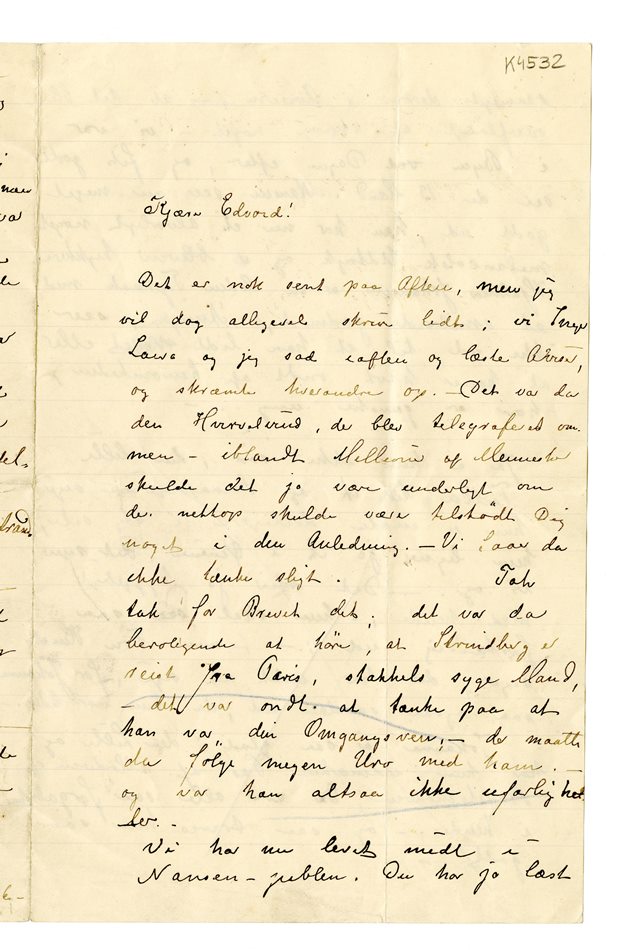 K4532
Kjære Edvard!
Det er nok sent paa Aften, men jeg
vil dog alligevel skrive lidt; vi Inger
Laura og jeg sad iaften og læste Aviser,
og skræmte hverandre op. – Det var da
den Hvirvelvind, der blev telegraferet om.
men – iblandt Millioner af Mennesker
skulde det jo være underlygt om
der nettop skulde være tilstödt Dig
noget i den Anledning. – Vi faar da
ikke tænke sligt. Tak
tak for Brevet dit; det var da
beroligende at höre, at Strindberg er
reist fra Paris, stakkels syge Mand,
– det var ondt at tænke paa at
han var din Omgangsven, – der maatte
da fölge megen Uro med ham. –
og var han altsaa ikke ufarlig hel
ler. –
Vi har nu levet midt i
Nansen-jublen. Du har jo læst